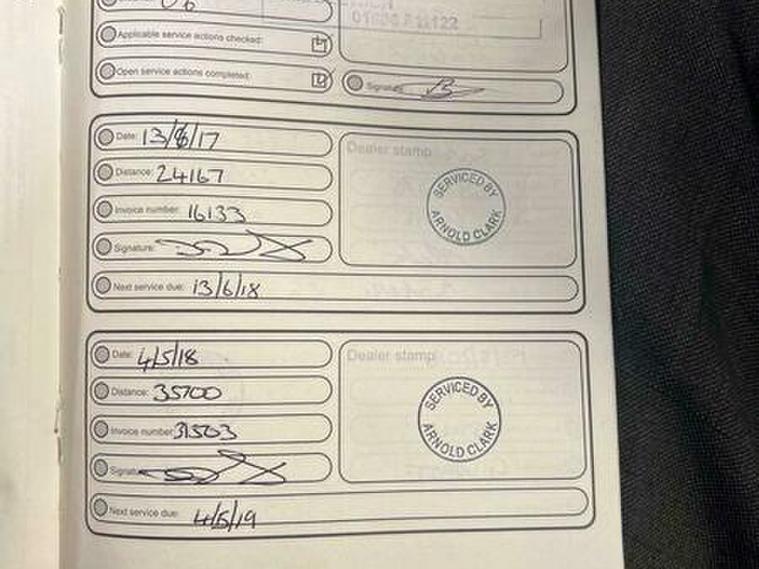 Applicable service actions checked:
Open service actions completed:
Signature:
Date: 13/6/17
Dealer stamp
Distance: 24167
SERVICED BY
ARNOLD CLARK
Invoice number: 16133
Signature:
Next service due: 13/6/18
Date: 4/5/18
Dealer stamp
Distance: 35700
SERVICED BY
ARNOLD CLARK
Invoice number: 31503
Signature:
Next service due: 4/5/19